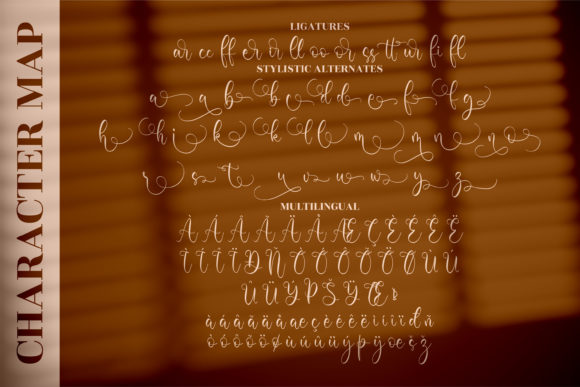 CHARACTER MAP
LIGATURES
ar cc ff er ir ll oo or ss tt ur fi fl
STYLISTIC ALTERNATES
a a b b c d d e f f g
h h i k k l l m m n n o
r s t y u u w s y z
MULTILINGUAL
À Á Â Ã Ä Å Æ Ç È É Ê Ë
Ì Í Î Ï Ð Ñ Ò Ó Ô Õ Ö Ø Ù Ú
Û Ü Ý Þ Š Ÿ Œ
à á â ã ä å æ ç è é ê ë ì í î ï đ ñ
ò ó ô õ ö ø ù ú û ü ý þ ÿ œ š ž